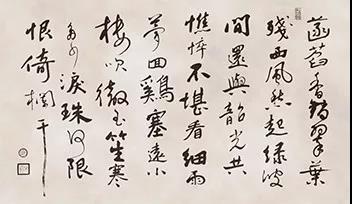 菡萏香銷翠葉
殘西風愁起綠波
間還與韶光共
憔悴不堪看細雨
夢回鷄塞遠小
樓吹徹玉笙寒
多少淚珠何限
恨倚欄干